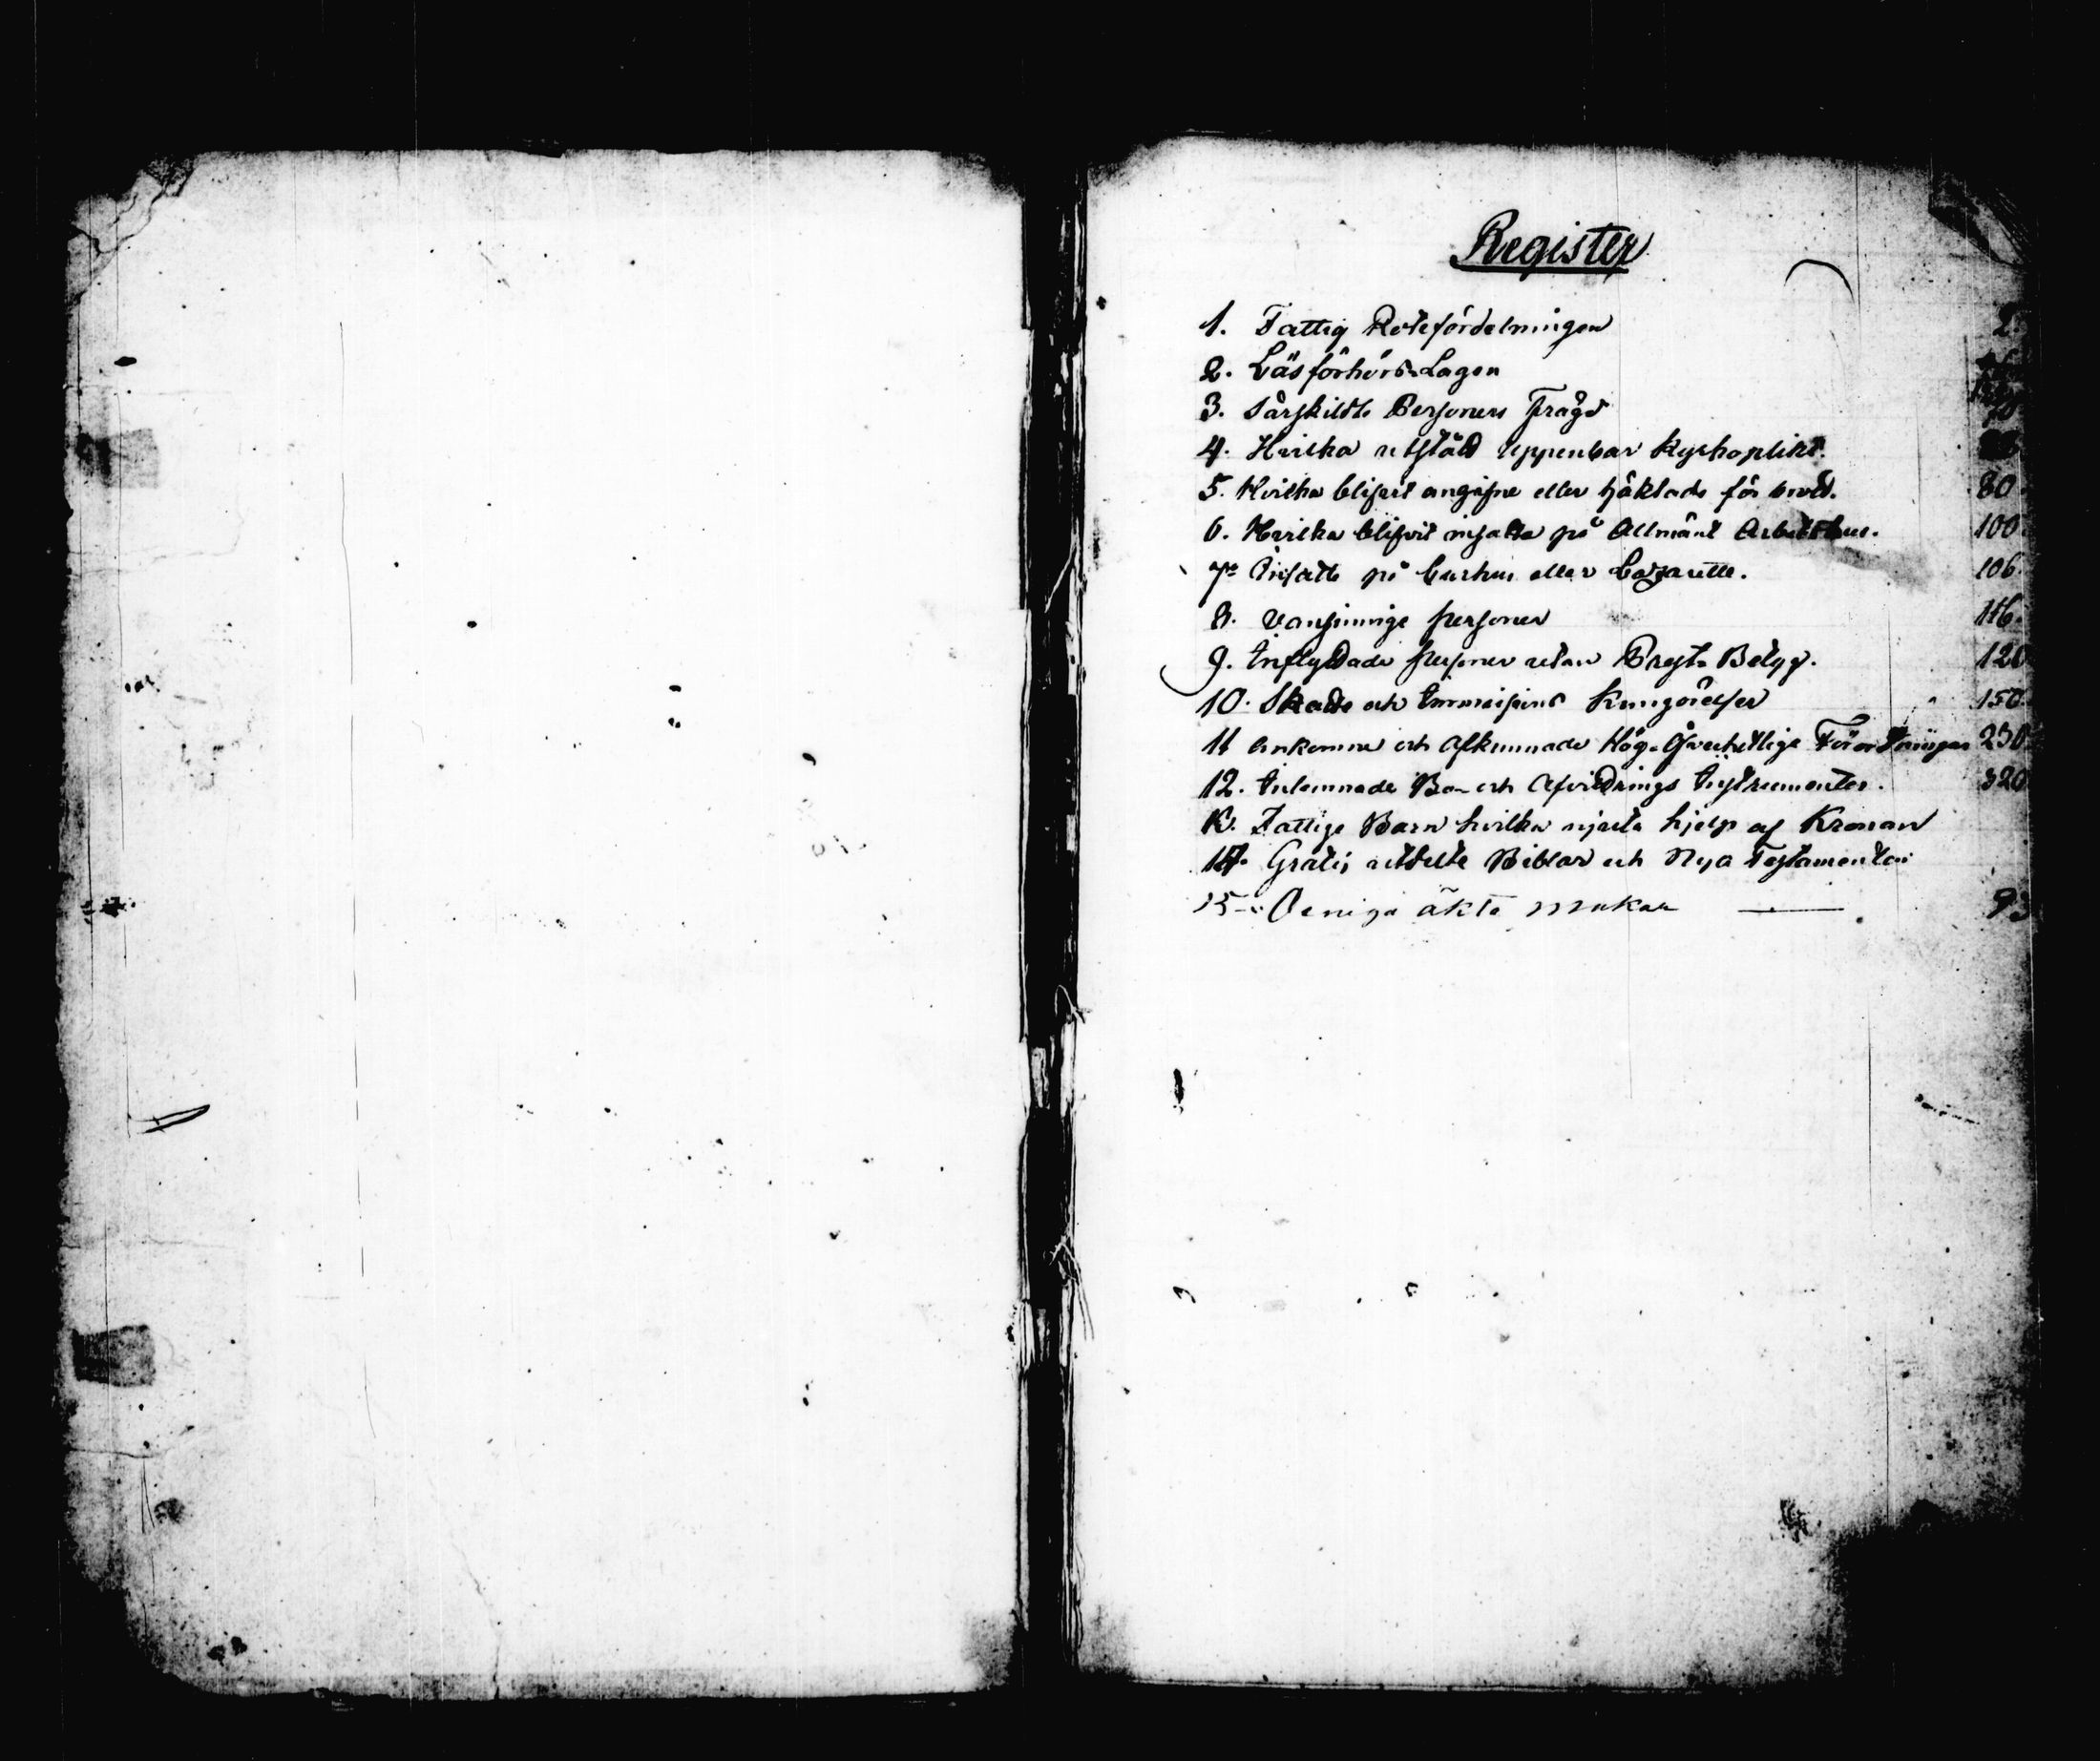 Register
1. Fattig Rotefördelningen 2.
2. Läsförhörs-Lagen
3. Särskildte Personers Frägd
4. Hvilka utståd uppenbar kyrkoplikt.
5. Hvilka blifvit angifne eller häktade för brott. 80.
6. Hvilka blifvit insatta på Allmänt Arbetshus. 100.
7. Insatte på Curhus eller Lazarette. 106.
8. Vansinnige personer 116.
9. Inflyttade personer utan Prest-Betyg. 120
10. och Kungörelser 150.
11 Ankomne och afkunnade Hög-Öfverhetlige Förordningar 230
12. Inlemnade Bo- och Afvittrings Instrumenter. 320
13. Fattige Barn hvilka njuta hjelp af Kronan
14. Gratis utdelte Biblar och Nya Testamenten
15 Oeniga äkta makar — 93